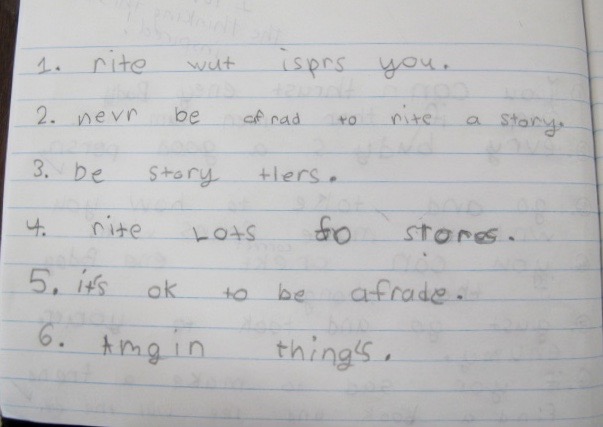 1. rite wut isprs you.
2. nevr be afrad to rite a story.
3. be story tlers.
4. rite Lots fo stores.
5. it's ok to be afrade.
6. Amgin thing's.